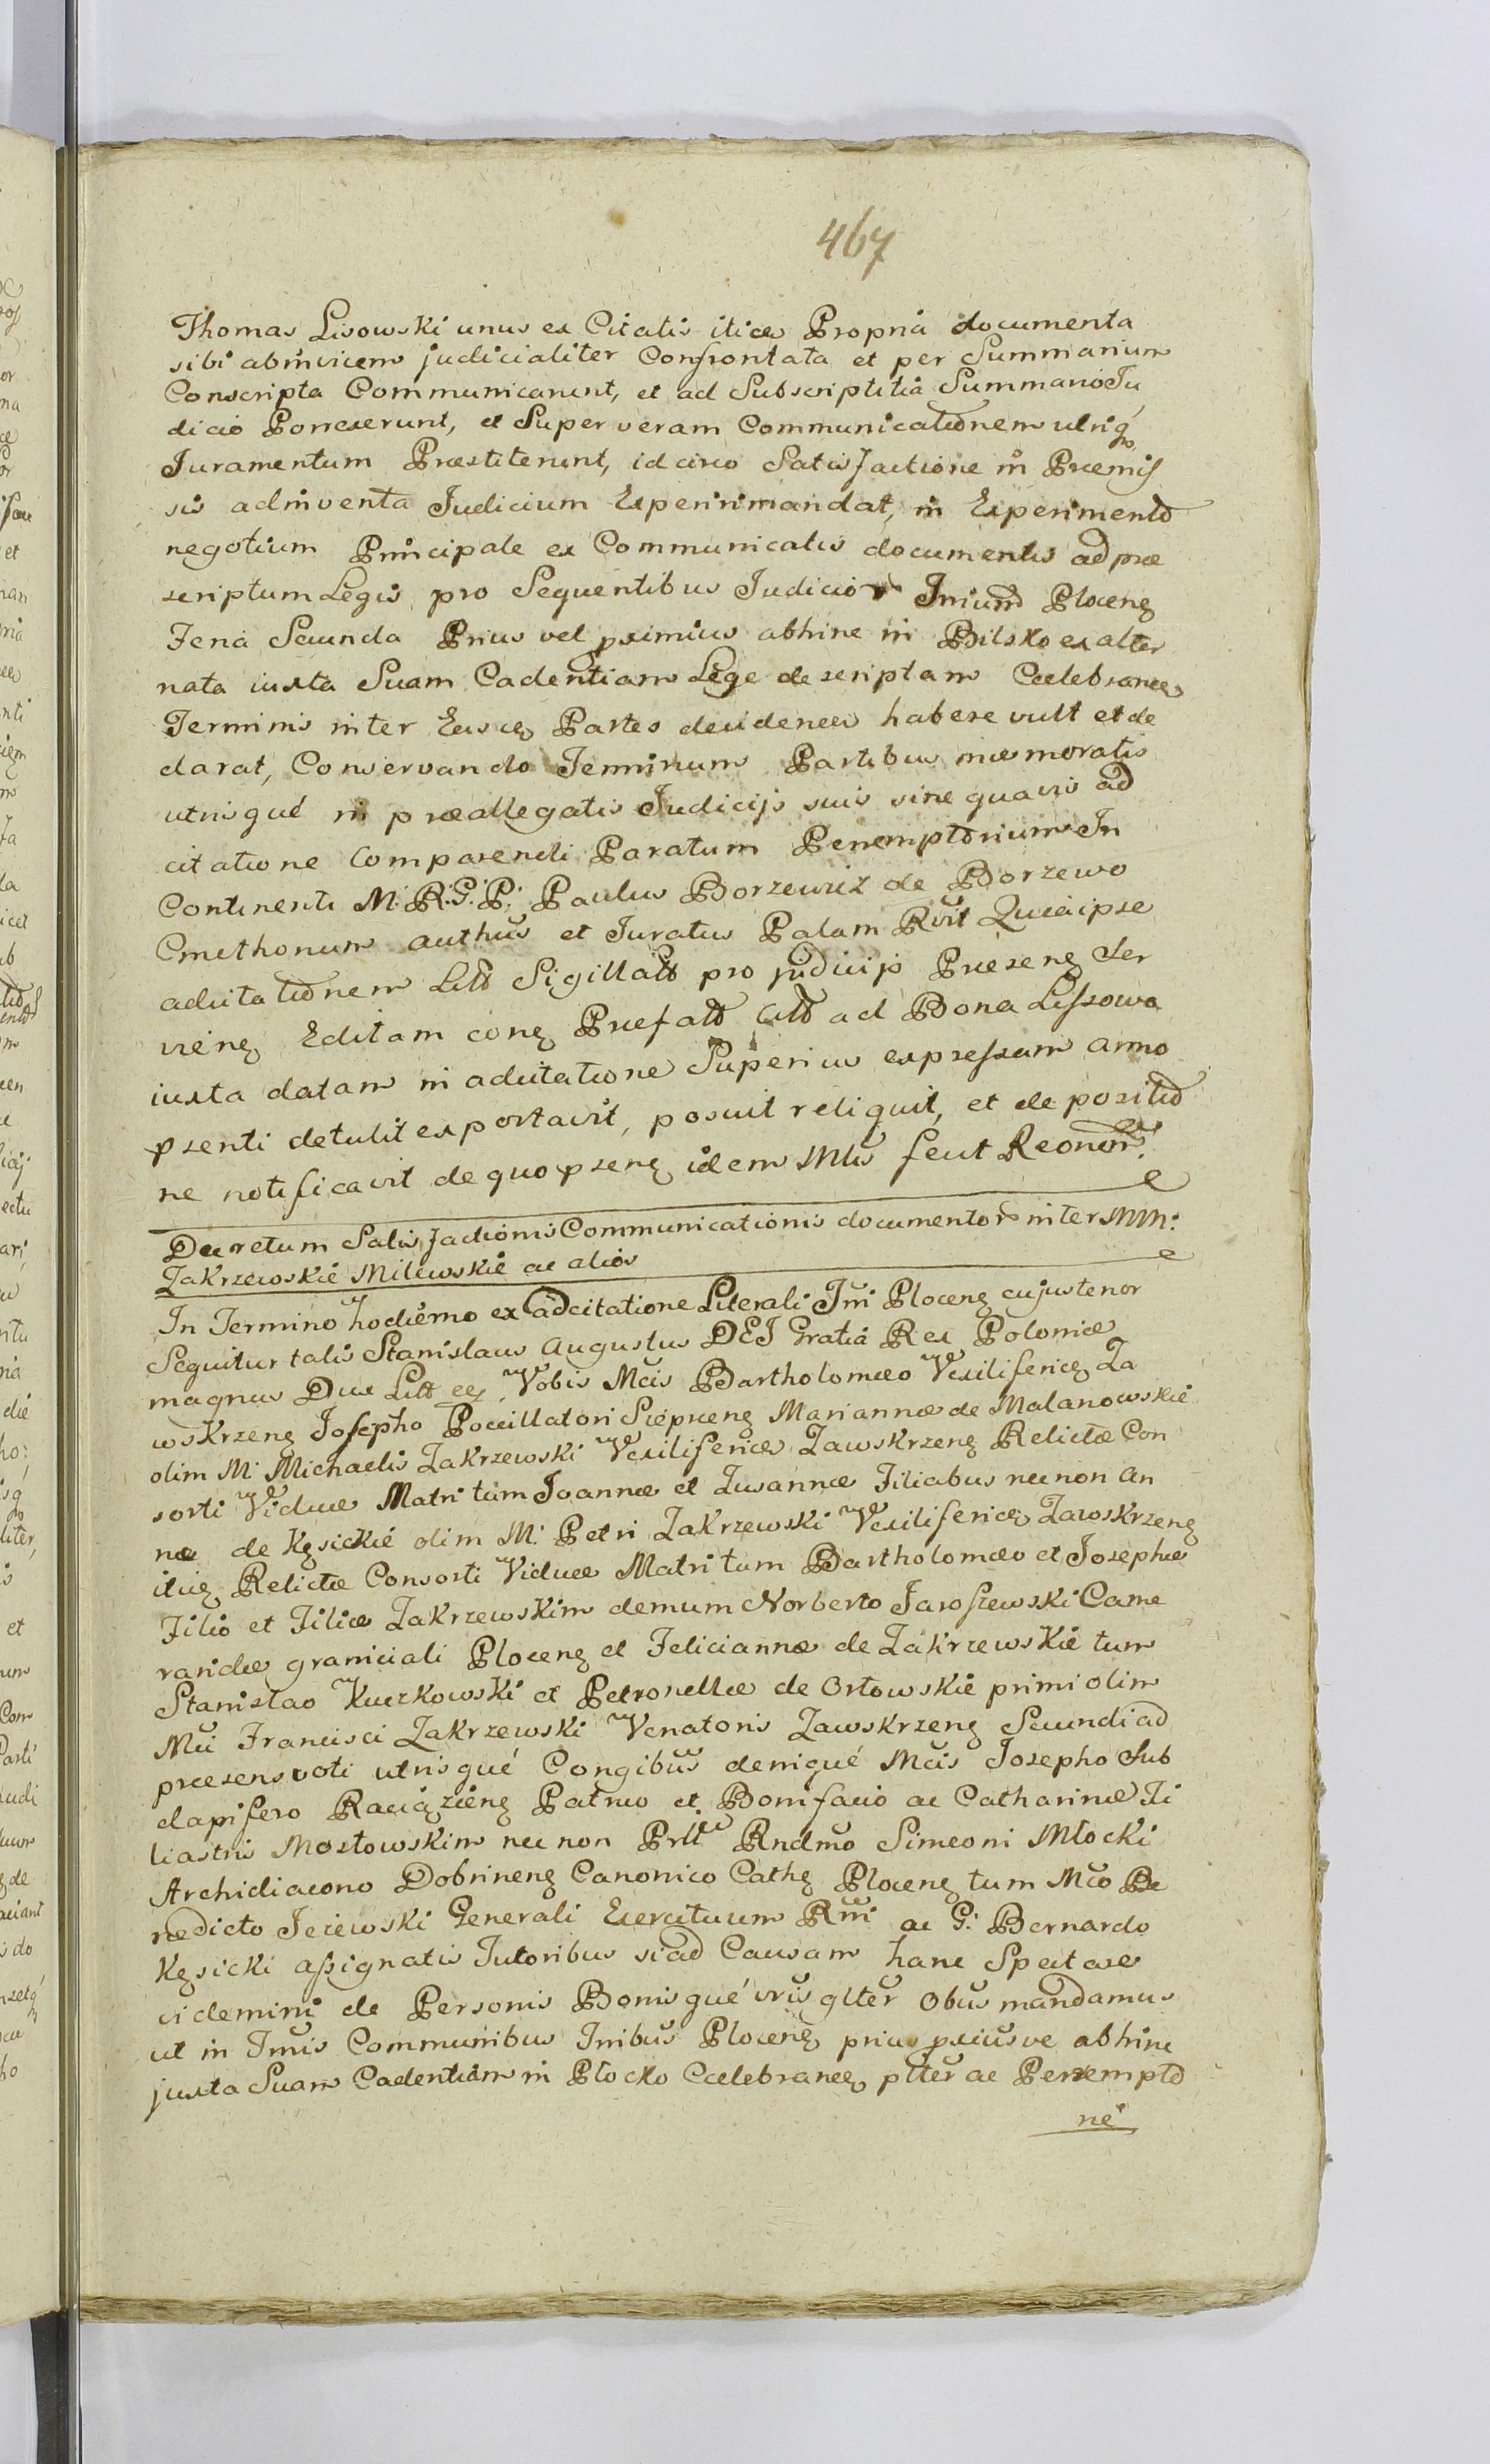 467
Thomas Lisowski unus ex Citatis itidẽ Propria documenta
sibi abinvicem judicialiter Confrontata et per Summarium
Conscripta Communicarunt, et ad Subscriptitiã Summario Ju
dicio Porrexerunt, et Super veram Communicationem utriq
Juramentum Præstiterunt, id circo Satisfactione in Præmis
sis adinventa Judicium Experiri mandat, in Experimento
negotium Principale ex Communicatis documentis ad præ
scriptum Legis pro Sequentibus Judicior Plocen
Feria Secunda Prius vel proximius abhinc in Bilsko ex alter
nata iuxta Suam Cadentiam Lege descriptam Celebran
Terminis inter Easdẽ Partes decidendũ habere vult et de
clarat, Conservando Terminum Partibus memoratis
utrisque in præallegatis Judicijs suis sine quavis ad
citatione Comparendi Paratum Peremptorium In
Continenti M: R: G: P: Paulus Borzewicz de Borzewo
Cmethonum authũs et Juratus Palam Rvit Quia ipse
adcitationem Litt Sigillatt pro judicijs Præsen Ser
vien Editam con Præfatt Citt ad Bona Lissowo
iuxta datam in adcitatione Superius expressam anno
pzenti detulit exportavit, posuit reliquit, et de positio
ne notificavit de quo pzen idem Mlis fecit Reonem.
Decretum Satisfactionis Communicationis documentor inter MM:
Zakrzewskie Milewskie ac alios
In Termino hodierno ex adcitatione Literali Jrii Plocen cujus tenor
Sequitur talis Stanislaus Augustus DEI Gratia Rex Poloniæ
magnus Dux Litt Vobis Mcis Bartholomæo Vexiliferidæ Za
wskrzen Josepho Pocillatori Sieprcen Mariannæ de Malanowskie
olim M: Michaelis Zakrzewski Vexiliferidæ Zawskrzen Relictæ Con
sorti Viduæ Matri tum Joannæ et Zusannæ Filiabus nec non An
næ de Kęsickie olim M: Petri Zakrzewski Vexiliferidæ Zawskrzen
itid Relictæ Consorti Viduæ Matri tum Bartholomæo et Josephæ
Filio et Filiæ Zakrzewskim demum Norberto Jaroszewski Came
raridæ graniciali Plocen et Feliciannæ de Zakrzewskie tum
Stanislao Kuczkowski et Petronellæ de Orłowskie primi olim
Mci Francisci Zakrzewski Venatoris Zawskrzen Secundi ad
præsens voti utrisque Congibũs denique Mcis Josepho Sub
dapifero Raciązien Patruo et Bonifacio ac Catharinæ Fi
liastris Mostowskim nec non Prlt Rndmo Simeoni Młocki
Archidiacono Dobrinen Canonico Cath Plocen tum Mco Be
nedicto Jeżewski Generali Exercituum Rni ac G: Bernardo
Kęsicki assignatis Tutoribus si ad Causam hanc Spectare
videmini de Personis Bonisque vris glter Obus mandamus
ut in Jrnis Communibus Jnibus Plocen prius pxiusve abhinc
juxta Suam Cadentiam in Płocko Celebran ptter ac Perempto
rie